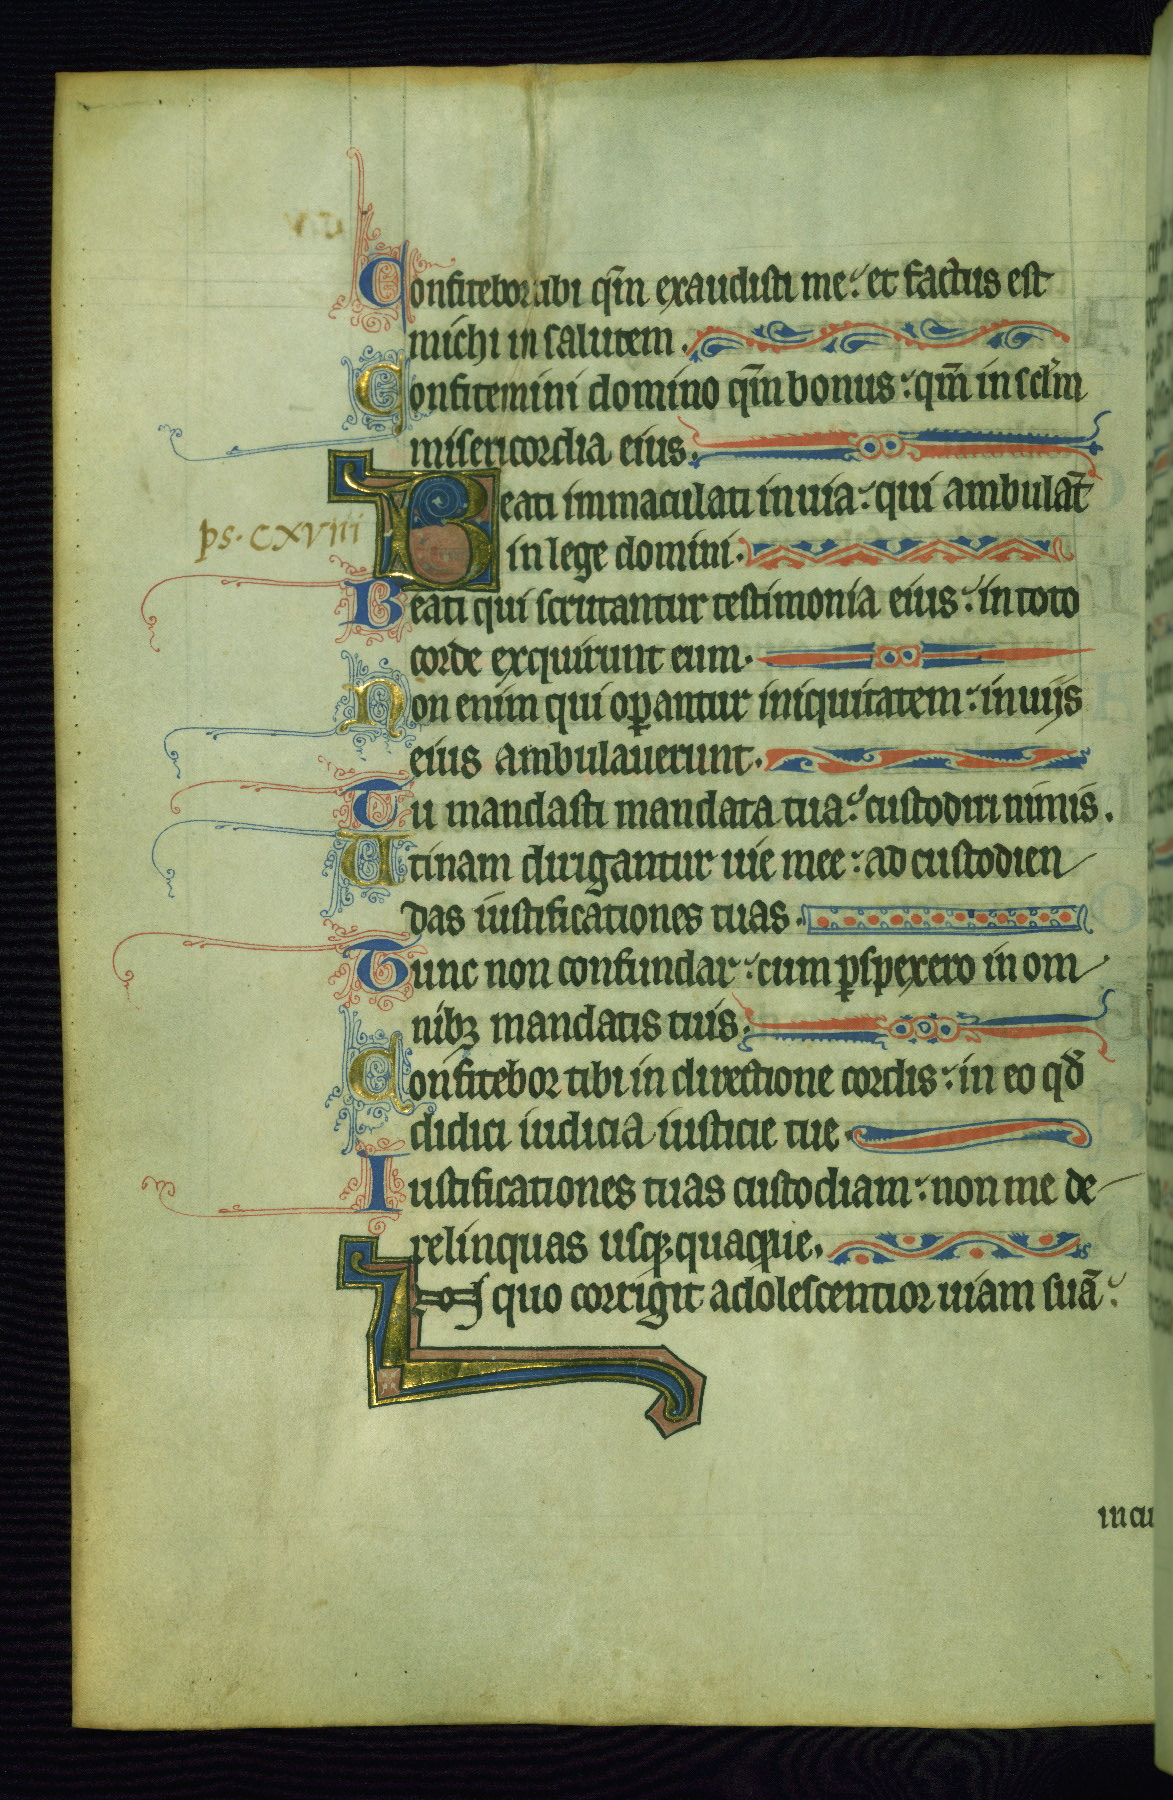 Confitebor tibi qm̄ exaudisti me: et factus est
michi in salutem.
Confitemini domino qm̄ bonus: qm̄ in sclm̄
misericordia eius.
Beati immaculati in uia: qui ambulāt
ps. CXVIII
in lege domini.
Beati qui scrutantur testimonia eius: in toto
corde exquirunt eum.
Non enim qui oꝑantur iniquitatem: in uijs
eius ambulauerunt.
Tu mandasti mandata tua: custodiri nimis.
Utinam dirigantur uie mee: ad custodien
das iustificationes tuas.
Tunc non confundar: cum ꝑspexero in om
nibꝫ mandatis tuis.
Confitebor tibi in directione cordis: in eo qd̄
didici iudicia iusticie tue.
Iustificationes tuas custodiam: non me de
relinquas usqꝫquaque.
In quo corrigit adolescentior uiam suā:
in cu